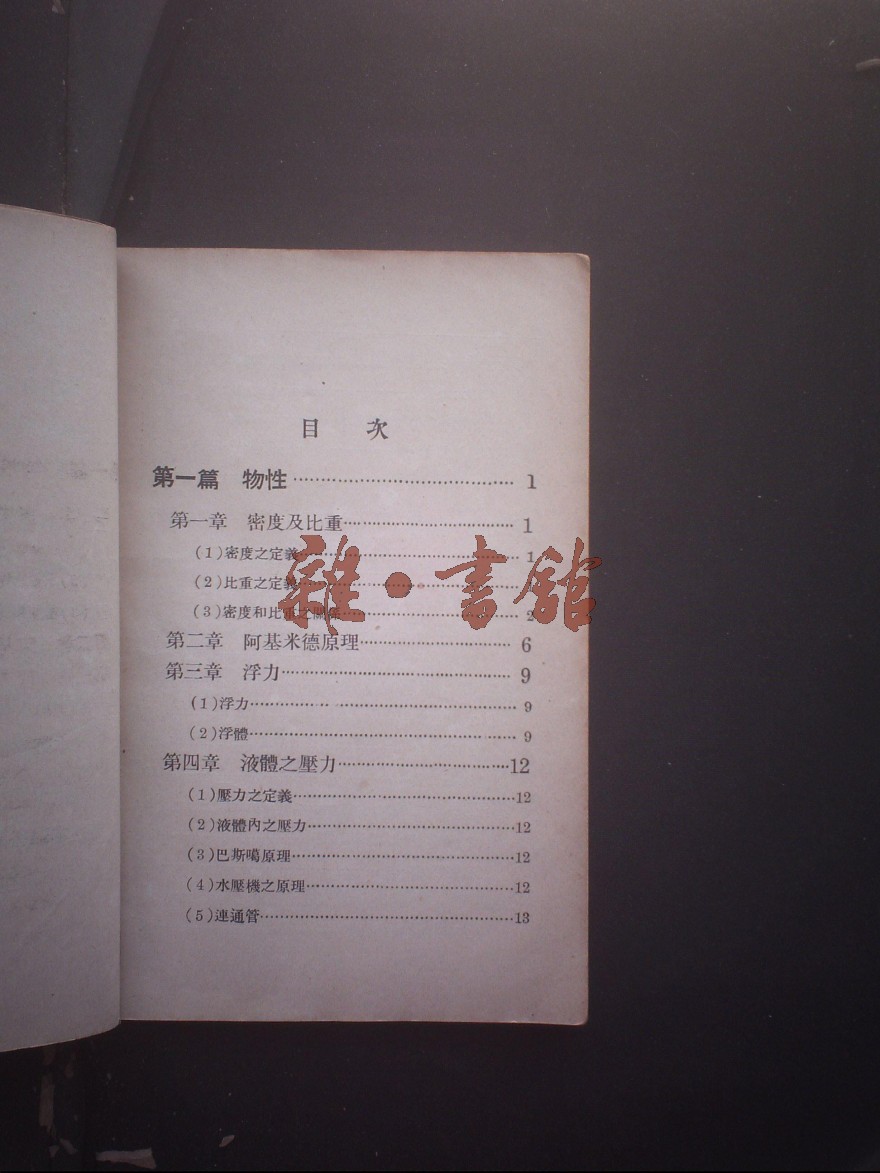 目 次
第一篇 物性…………………………………1
第一章 密度及比重…………………………1
(1)密度之定義………………………………1
(2)比重之定義………………………………
(3)密度和比重之關係………………………2
第二章 阿基米德原理………………………6
第三章 浮力…………………………………9
(1)浮力………………………………………9
(2)浮體………………………………………9
第四章 液體之壓力…………………………12
(1)壓力之定義………………………………12
(2)液體內之壓力……………………………12
(3)巴斯噶原理………………………………12
(4)水壓機之原理……………………………12
(5)連通管……………………………………13
雜·書館